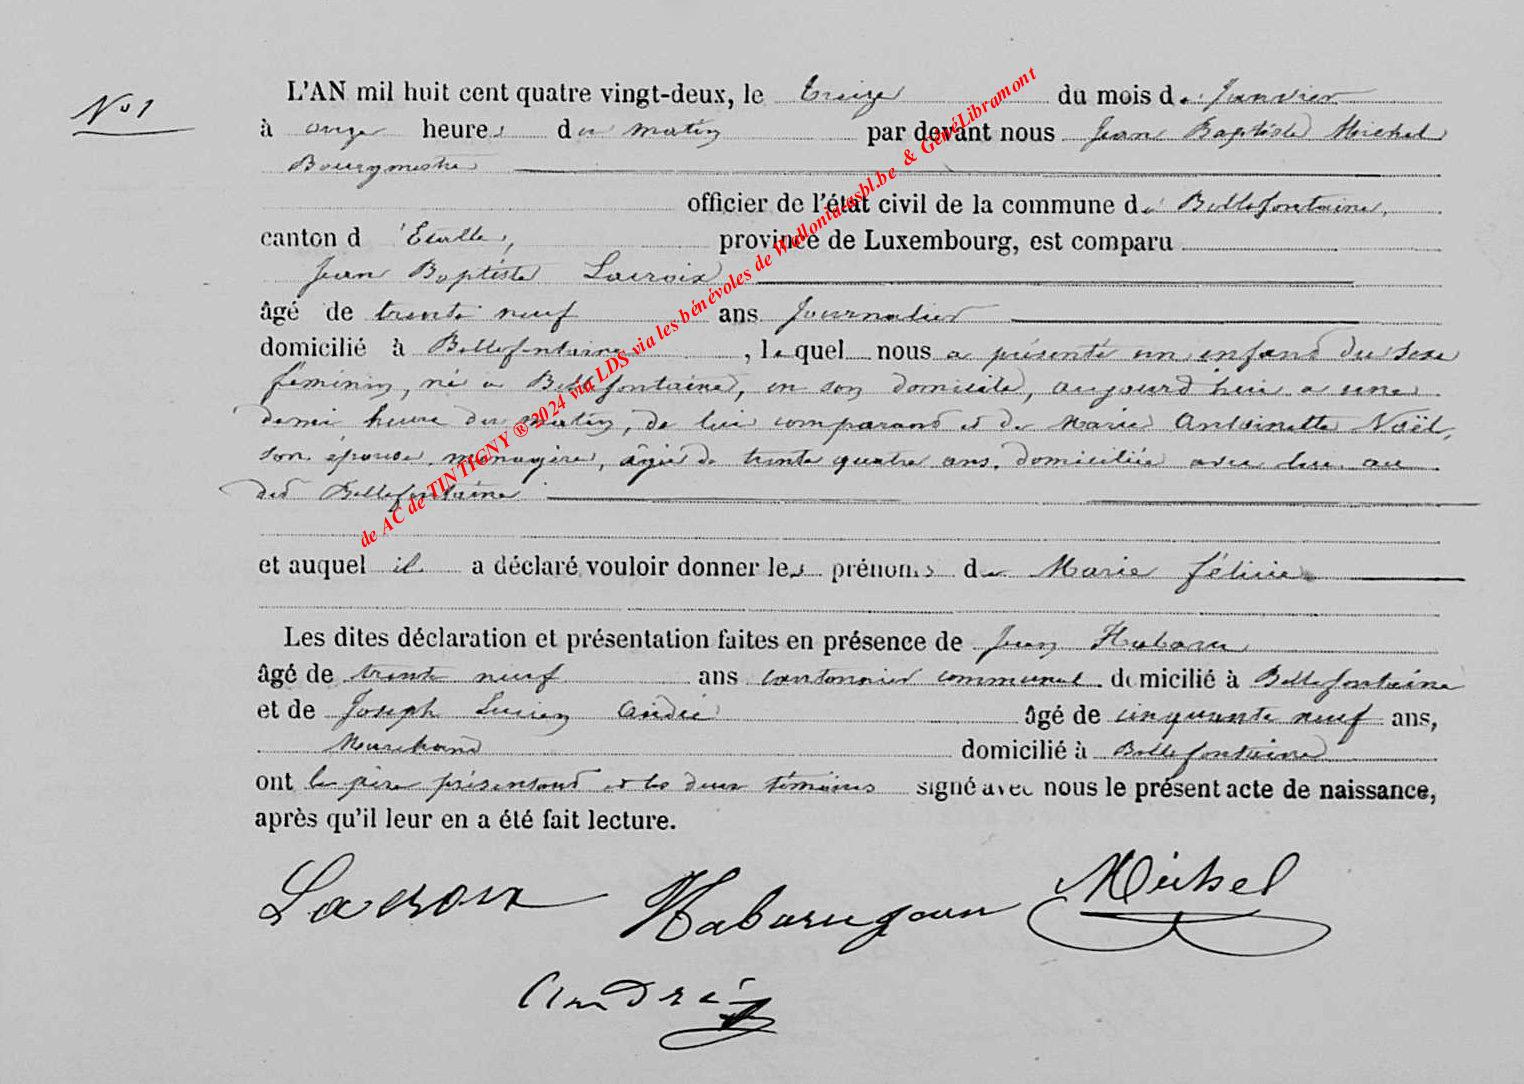 N° 1
L'AN mil huit cent quatre vingt-deux, le treize du mois de Janvier
à onze heures du matin par devant nous Jean Baptiste Michel
Bourgmestre
officier de l'état civil de la commune de Bellefontaine,
canton d'Etalle, province de Luxembourg, est comparu
Jean Baptiste Lacroix
âgé de trente neuf ans Journalier
domicilié à Bellefontaine, lequel nous a présenté un enfant du sexe
féminin, né à Bellefontaine, en son domicile, aujourd'hui à une
demi heure du matin, de lui comparant et de Marie Antoinette Noël,
son épouse, ménagère, âgée de trente quatre ans, domiciliée avec lui au
dit Bellefontaine
et auquel il a déclaré vouloir donner les prénoms de Marie Félicie
Les dites déclaration et présentation faites en présence de Jean Habaru
âgé de trente neuf ans cantonnier communal domicilié à Bellefontaine
et de Joseph Lucien André âgé de cinquante neuf ans,
Marchand domicilié à Bellefontaine
ont le père présentant et les deux témoins signé avec nous le présent acte de naissance,
après qu'il leur en a été fait lecture.
Lacroix Habaru jean Michel
André
de AC de TINTIGNY ® 2024 via LDS via les bénévoles de Wallonia-asbl.be & GénéLibramont